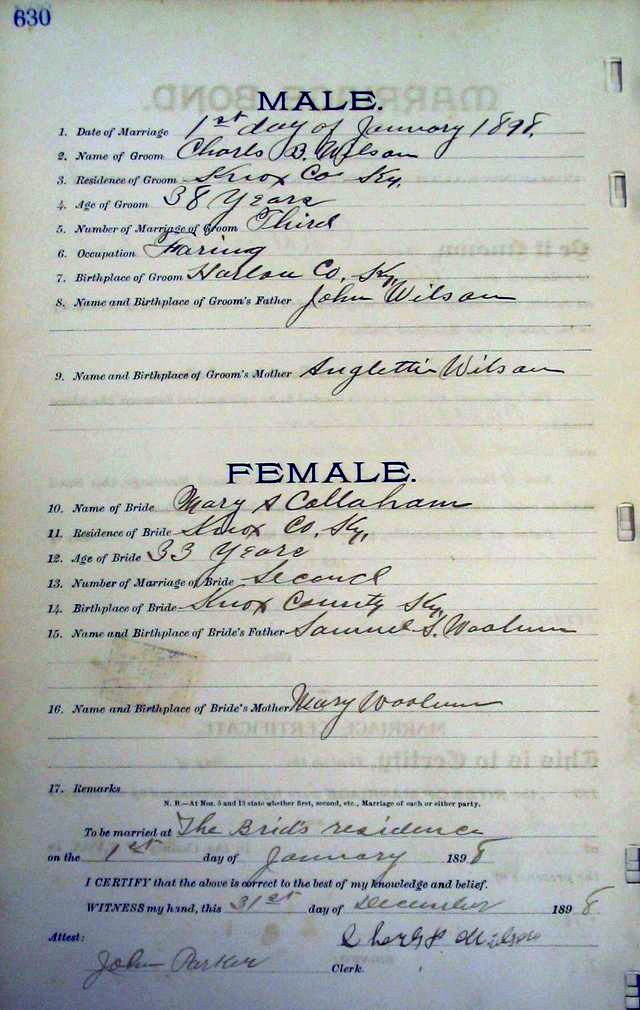 630
MALE.
1. Date of Marriage 1st day of January 1898.
2. Name of Groom Charls B. Wilson
3. Residence of Groom Knox Co Ky.
4. Age of Groom 38 Years
5. Number of Marriage of Groom Third
6. Occupation Faring
7. Birthplace of Groom Harlan Co. Ky.
8. Name and Birthplace of Groom's Father John Wilson
9. Name and Birthplace of Groom's Mother Anglettie Wilson
FEMALE.
10. Name of Bride Mary S Callaham
11. Residence of Bride Knox Co. Ky.
12. Age of Bride 33 Years
13. Number of Marriage of Bride Second
14. Birthplace of Bride Knox County Ky.
15. Name and Birthplace of Bride's Father Samuel S. Woolum
16. Name and Birthplace of Bride's Mother Mary Woolum
17. Remarks
N. B.—At Nos. 5 and 13 state whether first, second, etc., Marriage of each or either party.
To be married at The Brid's residence
on the 1st day of January 1898
I CERTIFY that the above is correct to the best of my knowledge and belief.
WITNESS my hand, this 31st day of December 1898
Attest:
John Parker Clerk.